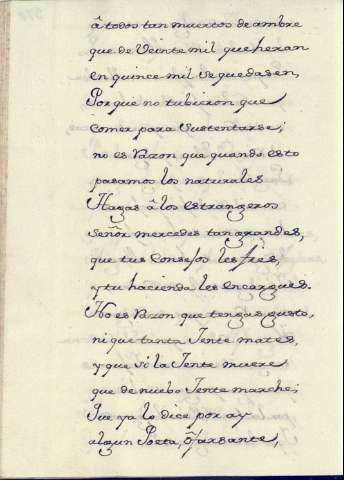 â todos tan muertos de ambre
que de Veinte mil que heran
en quince mil se quedasen,
Porque no tubieron que
comer para Sustentarse;
no es Razon que quando esto
pasamos los naturales
Hagas â los estrangeros
Señor mercedes tan grandes,
que tus Consejos les fies,
y tu hacienda les encargues.
No es Razon que tengas gusto,
ni que tanta Jente mates,
y que si la Jente muere
que de nuebo Jente marche;
Que ya lo dice por ay
algun Poeta, ô farsante,